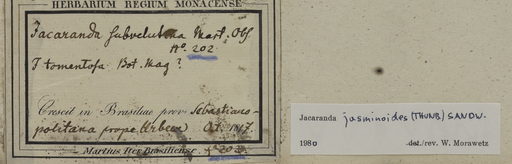 HERBARIUM REGIUM MONACENSE
Jacaranda subvelutina Mart. Obs
No. 202
J tomentosa Bot. Mag ?
Crescit in Brasiliae prov Sebastiano-
politana prope Urbem Oct. 1817.
Martius Iter Brasiliense. No 202
Jacaranda jasminoides (THUNB.) SANDW.
1980 det./rev. W. Morawetz